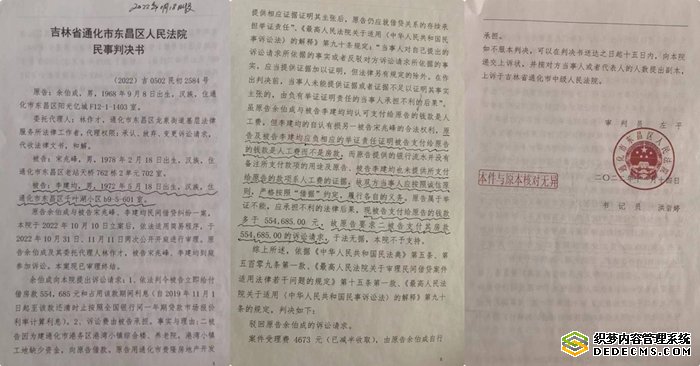 吉林省通化市东昌区人民法院
民事判决书
（2022）吉0502民初2584号
原告：余伯成，男，1968年9月8日出生，汉族，住
通化市东昌区阳光亿城F12-1-1403室。
委托代理人：林作才，通化市东昌区龙泉街道基层法律
服务所法律工作者，代理权限：承认、放弃、变更诉讼请求，
代收法律文书，和解。
被告：宋兆峰，男，1978年2月18日出生，汉族，住
通化市东昌区老站天桥762栋2单元702室。
被告：李建均，男，1972年5月18日出生，汉族，住
通化市东昌区子叶湖小区b9-5-601室。
原告余伯成与被告宋兆峰、李建均民间借贷纠纷一案，
本院于2022年10月10日立案后，依法适用简易程序，于
2022年10月31日、11月11日两次公开开庭进行审理。原
告余伯成及其委托代理人林作才，被告宋兆峰、李建均到庭
参加诉讼。本案现已审理终结。
余伯成向本院提出诉讼请求：1、依法判令被告立即给付
借房款554,685元和占用该款期间利息（自2019年11月1
日起至该款还清时止按照全国银行同一年期贷款市场报价
利率计算利息）。2、诉讼费由被告承担。事实与理由：二被
告因为建通化市港务区港湾小镇综合楼、养老院、港湾小镇
工地缺少资金，向原告借款，原告用通化市费隆房地产开发
提供相应证据证明其主张后，原告仍应就借贷关系的存续承
担举证责任"。《最高人民法院关于适用〈中华人民共和国民
事诉讼法〉的解释》第九十条规定："当事人对自己提出的
诉讼请求所依据的事实或者反驳对方诉讼请求所依据的事
实，应当提供证据加以证明，但法律另有规定的除外。在作
出判决前，当事人未能提供证据或者证据不足以证明其事实
主张的，由负有举证证明责任的当事人承担不利的后果"。
虽原告余伯成与被告李建均均认可支付给原告的钱款是人
工费，但李建均的自认有损另一被告宋兆峰的合法权利，原
告及被告李建均应负相应的举证责任证明被告支付给原告
的钱款是人工费而不是房款，而原告提供的银行流水并没有
备注所支付款项的用途及原告、被告李建均也未提供所支付
给原告的款项系人工费的证据，故双方当事人应按照诚信原
则，严格按照"借据"约定，履行各自的义务，原告属于举
证不能，应承担不利的法律后果，现被告支付给原告的钱款
多于554,685.00元，故原告要求二被告支付其房款
554,685.00的诉讼请求，于法无据，本院不予支持。
综上所述，依据《中华人民共和国民法典》第五条、第
五百零九条第一款，《最高人民法院关于审理民间借贷案件
适用法律若干问题的规定》第十五条第一款、《最高人民法
院关于适用〈中华人民共和国民事诉讼法〉的解释》第九十条
的规定，判决如下：
驳回原告余伯成的诉讼请求。
案件受理费4673元（已减半收取），由原告余伯成自行
承担。
如不服本判决，可以在判决书送达之日起十五日内，向本院
递交上诉状，并按对方当事人或者代表人的人数提出副本，
上诉于吉林省通化市中级人民法院。
审判员 左平
本件与原本核对无异
书记员 洪岩婷
织梦内容管理系统
DEDECMS.COM